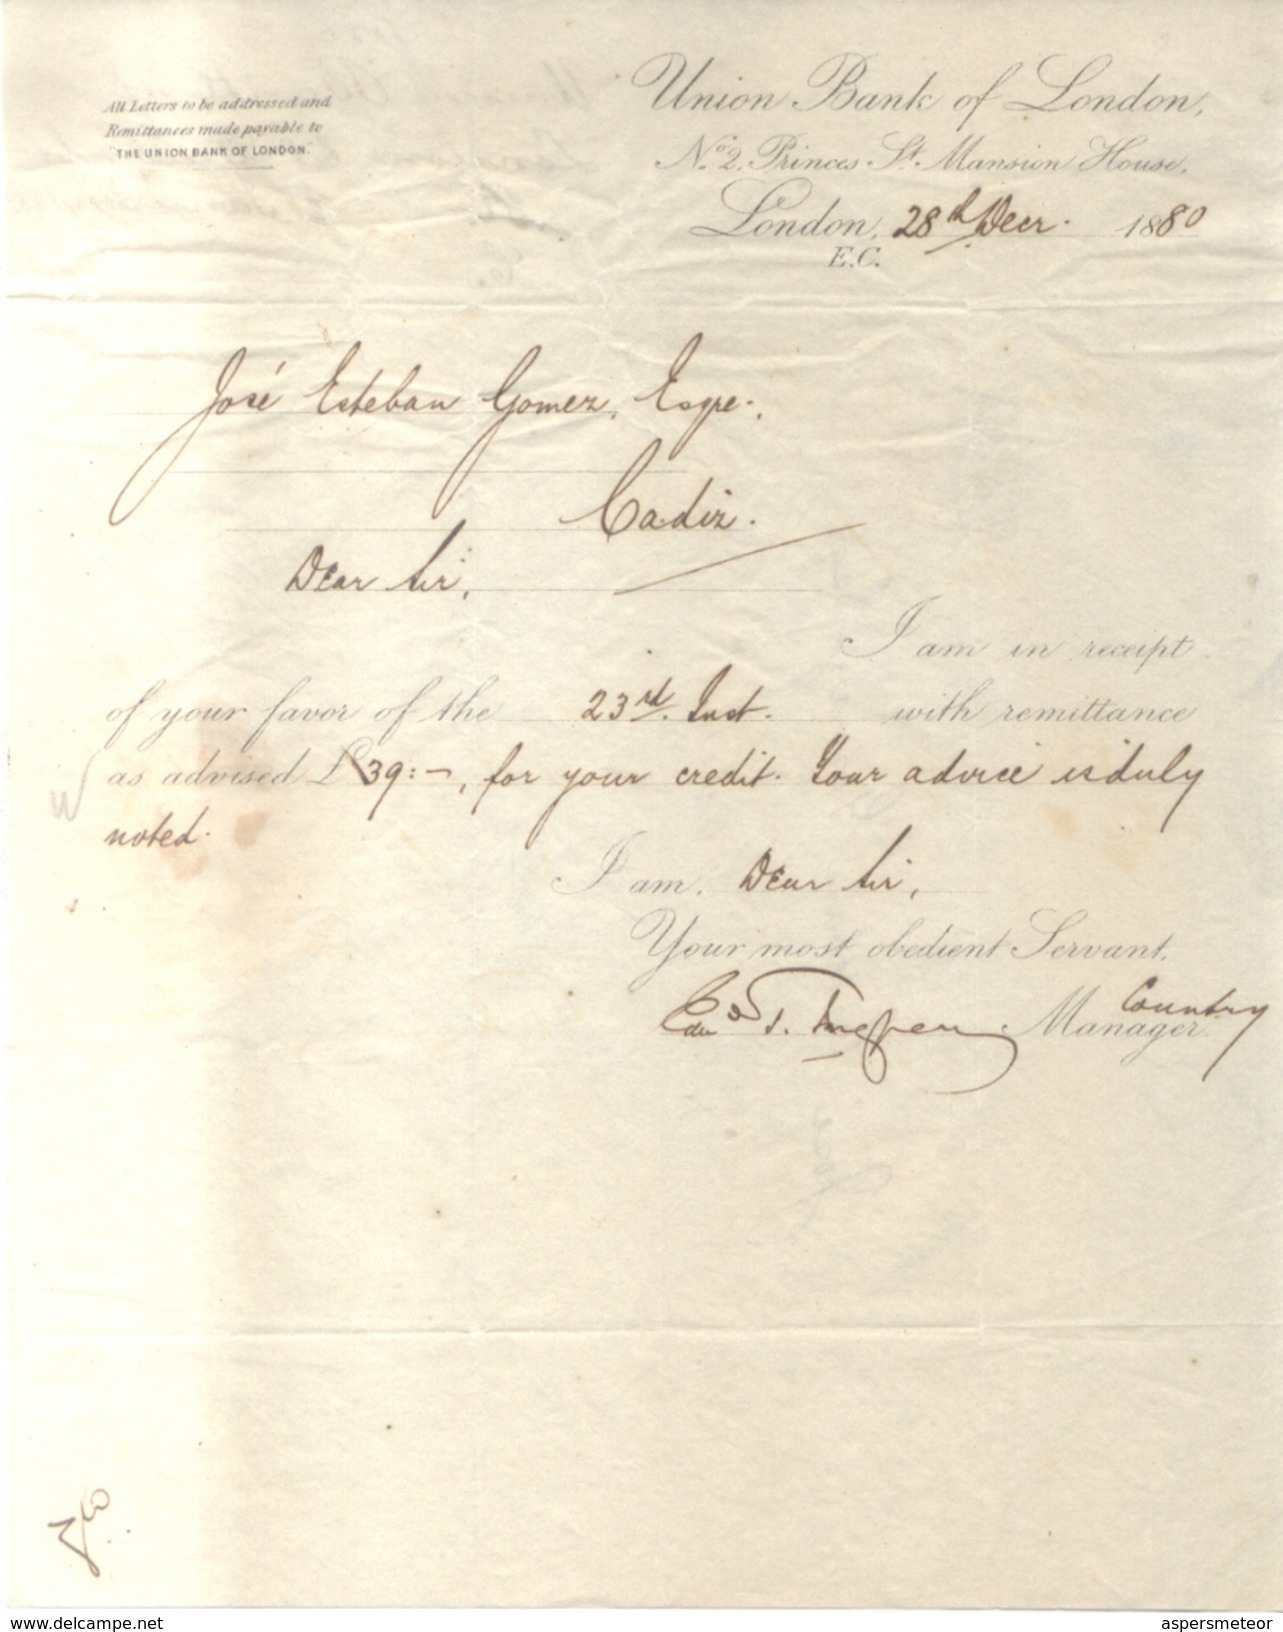 All Letters to be addressed and
Remittances made payable to
"THE UNION BANK OF LONDON."
Union Bank of London,
No. 2. Princes St. Mansion House,
London, 28th Decr. 1880
E.C.
José Esteban Gomez, Esqre.,
Cadiz.
Dear Sir,
I am in receipt
of your favor of the 23rd. Inst. with remittance
as advised £39:-, for your credit. Your advice is duly
noted.
I am, Dear Sir,
Your most obedient Servant.
Country
Manager.
www.delcampe.net
aspersmeteor